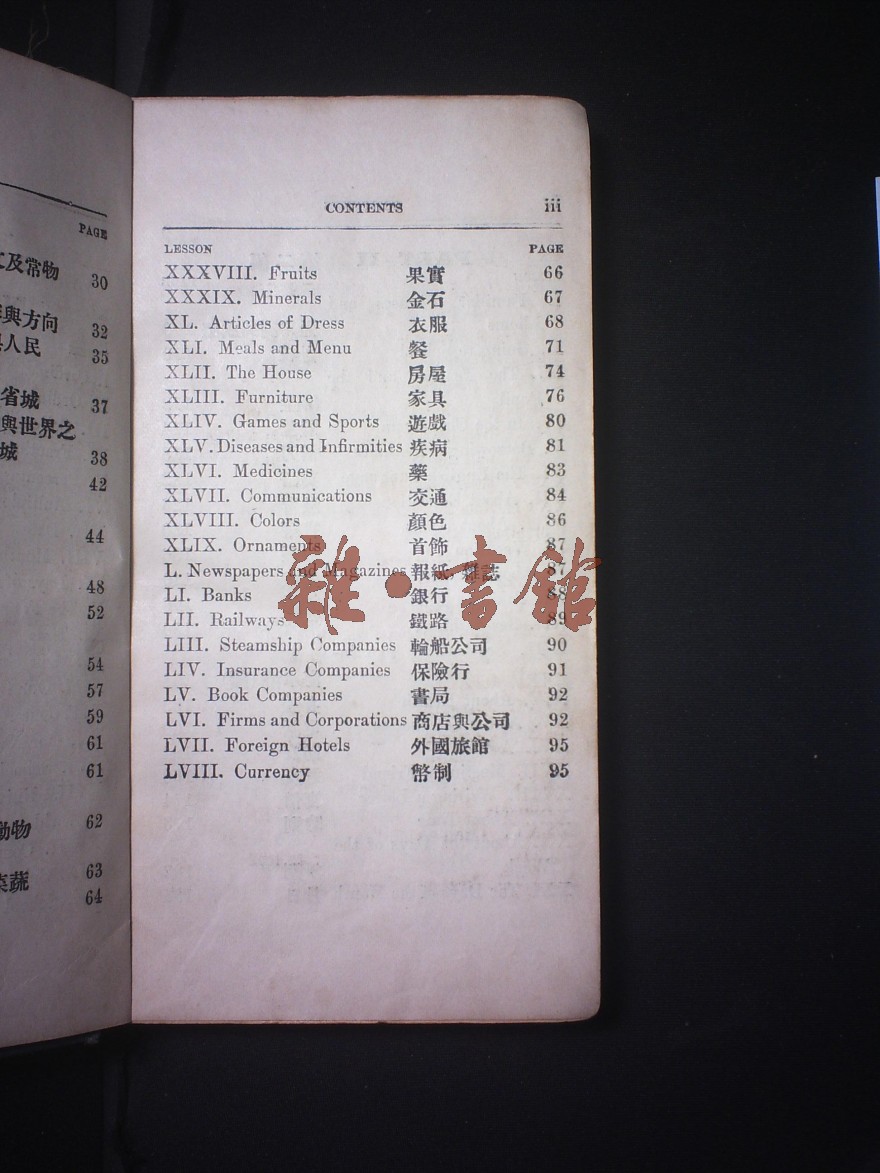 PAGE
及常物 30
與方向 32
人民 35
省城 37
與世界之
城 38
42
44
48
52
54
57
59
61
61
動物 62
菜蔬 63
64
CONTENTS iii
LESSON PAGE
XXXVIII. Fruits 果實 66
XXXIX. Minerals 金石 67
XL. Articles of Dress 衣服 68
XLI. Meals and Menu 餐 71
XLII. The House 房屋 74
XLIII. Furniture 家具 76
XLIV. Games and Sports 遊戲 80
XLV. Diseases and Infirmities 疾病 81
XLVI. Medicines 藥 83
XLVII. Communications 交通 84
XLVIII. Colors 顏色 86
XLIX. Ornaments 首飾 87
L. Newspapers and Magazines 報紙, 雜誌 87
LI. Banks 銀行 88
LII. Railways 鐵路 89
LIII. Steamship Companies 輪船公司 90
LIV. Insurance Companies 保險行 91
LV. Book Companies 書局 92
LVI. Firms and Corporations 商店與公司 92
LVII. Foreign Hotels 外國旅館 95
LVIII. Currency 幣制 95
雜·書館